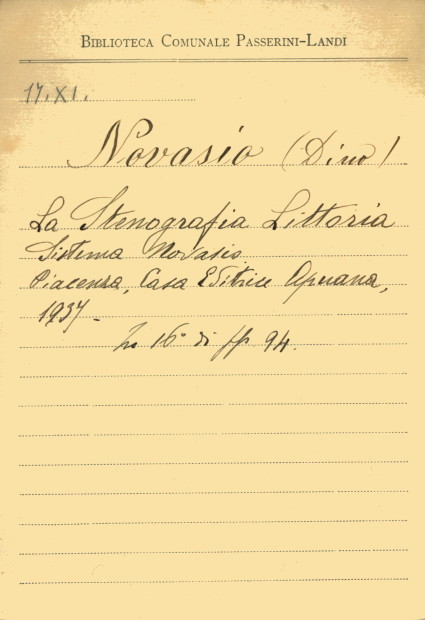 BIBLIOTECA COMUNALE PASSERINI-LANDI
17.XI.
Novasio (Dino)
La Stenografia Littoria
Sistema Novasio.
Piacenza, Casa Editrice Apuana,
1937 -
In 16° di pp. 94.